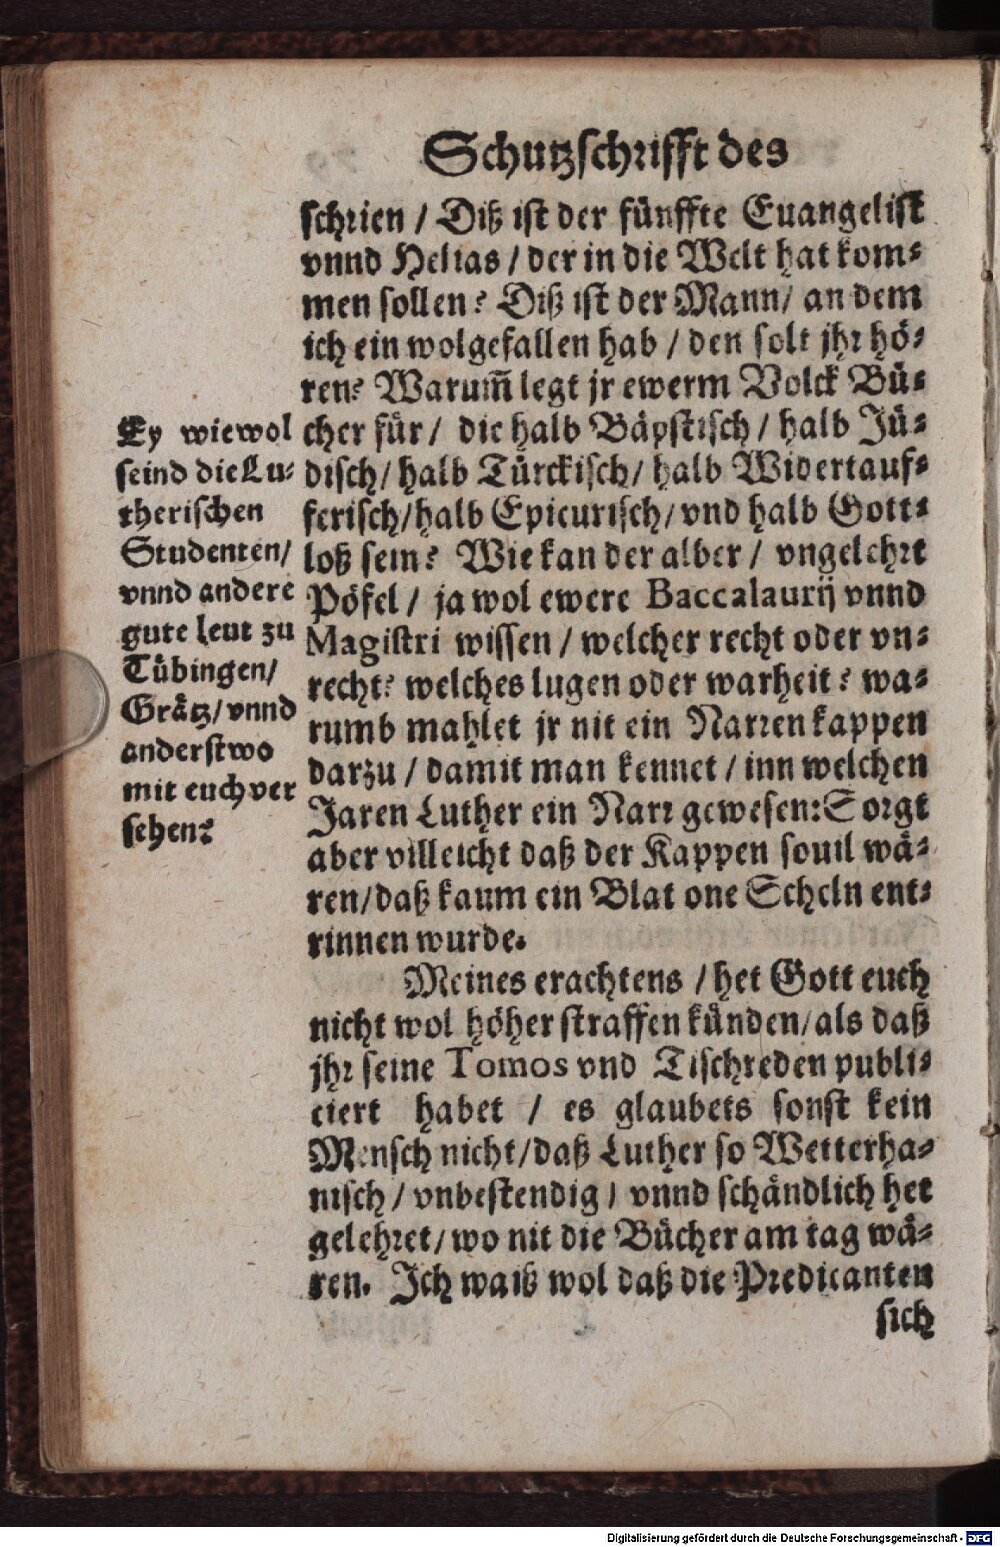 Schutzschrifft des
schrien / Diß ist der fünffte Euangelist
vnnd Helias / der in die Welt hat kom⸗
men sollen? Diß ist der Mann / an dem
ich ein wolgefallen hab / den solt jhr hö⸗
ren? Warum̃ legt jr ewerm Volck Bü⸗
cher für / die halb Bäpstisch / halb Jü⸗
disch / halb Türckisch / halb Widertauf⸗
ferisch / halb Epicurisch / vnd halb Gott⸗
loß sein? Wie kan der alber / vngelehrt
Pöfel / ja wol ewere Baccalaurij vnnd
Magistri wissen / welcher recht oder vn⸗
recht? welches lugen oder warheit? wa⸗
rumb mahlet jr nit ein Narrenkappen
darzu / damit man kennet / inn welchen
Jaren Luther ein Narr gewesen? Sorgt
aber villeicht daß der Kappen souil wä⸗
ren / daß kaum ein Blat one Scheln ent⸗
rinnen wurde.
Meines erachtens / het Gott euch
nicht wol höher straffen künden / als daß
jhr seine Tomos vnd Tischreden publi⸗
ciert habet / es glaubets sonst kein
Mensch nicht / daß Luther so Wetterha⸗
nisch / vnbestendig / vnnd schändlich het
gelehret / wo nit die Bücher am tag wä⸗
ren. Ich waiß wol daß die Predicanten
sich
Ey wiewol
seind die Lu⸗
therischen
Studenten /
vnnd andere
gute leut zu
Tübingen /
Grätz / vnnd
anderstwo
mit euch ver
sehen?
Digitalisierung gefördert durch die Deutsche Forschungsgemeinschaft - DFG